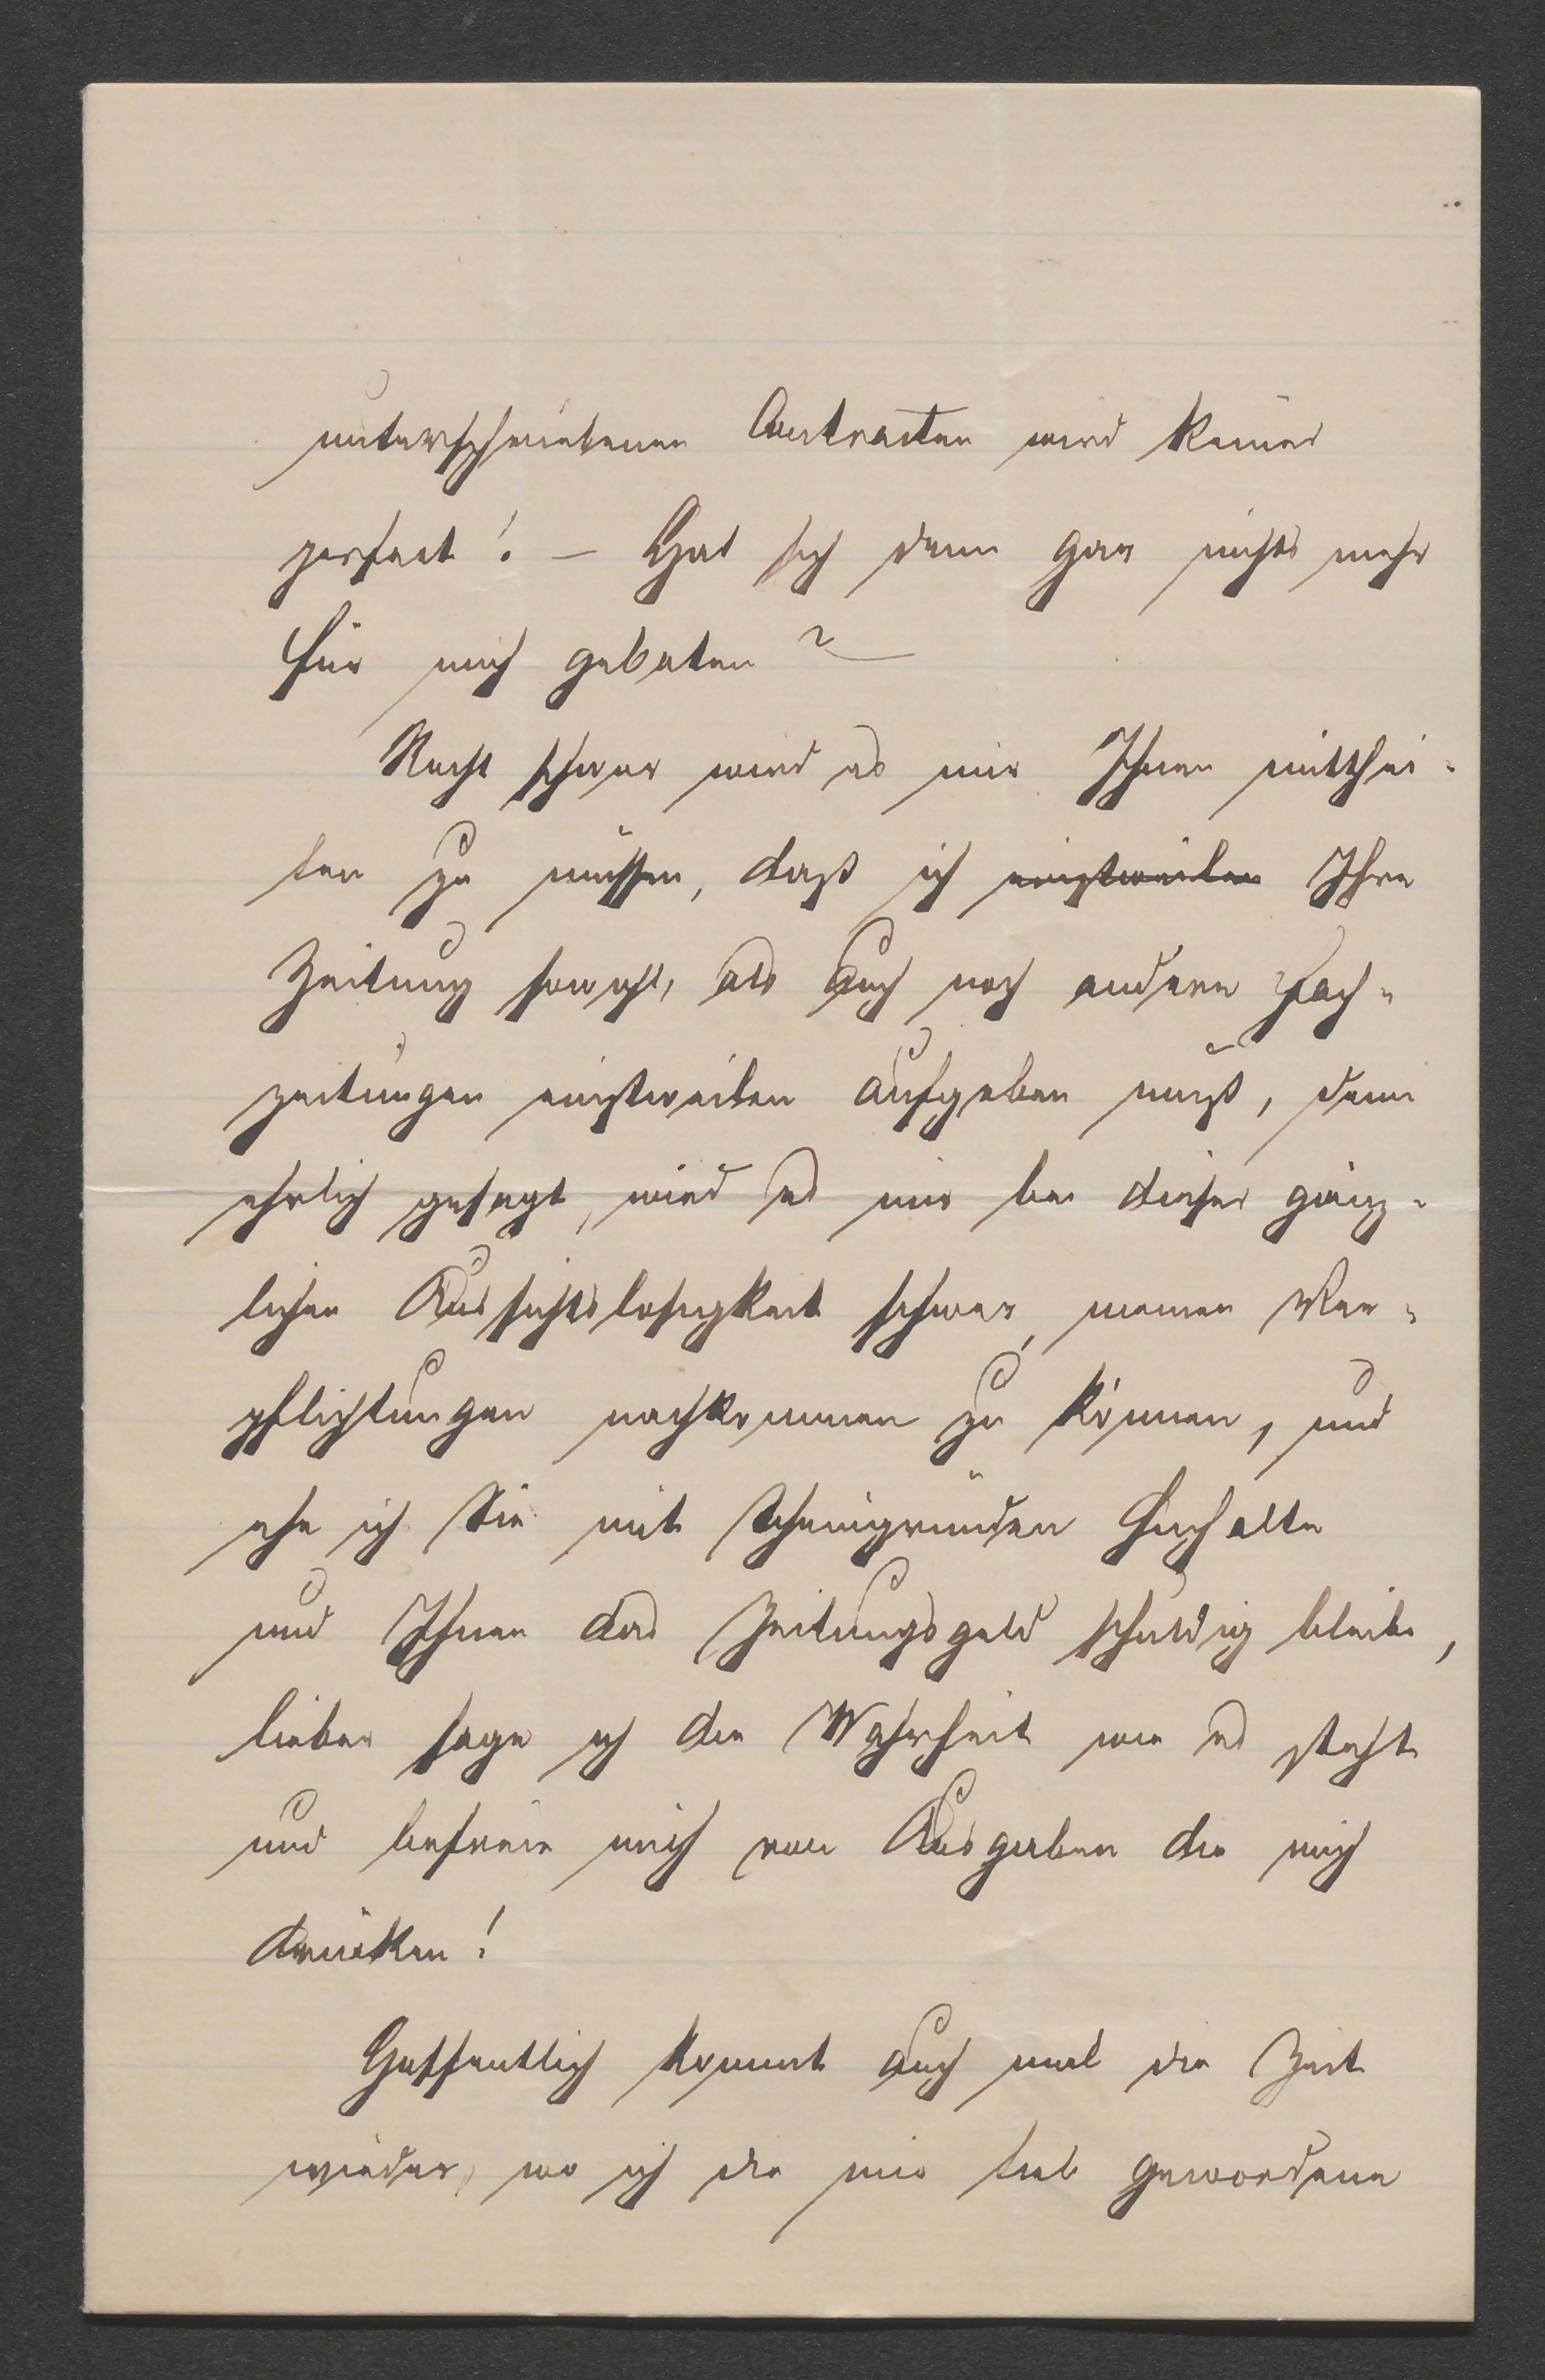 unterschriebenen Contracten wird keiner
perfect! – Hat sich denn gar nichts mehr
für mich geboten?
Recht schwer wird es mir Ihnen mitthei-
len zu müssen, daß ich einstweilen Ihre
Zeitung sowohl, als auch noch andere Fach-
zeitungen einstweilen aufgeben muß, denn
ehrlich gesagt, wird es mir bei dieser gänz-
lichen Aussichtslosigkeit schwer, meinen Ver-
pflichtungen nachkommen zu können, und
ehe ich Sie mit Scheingründen hinhalte
und Ihnen das Zeitungsgeld schuldig bleibe,
lieber sage ich die Wahrheit wie es steht
und befreie mich von Ausgaben die mich
drücken!
Hoffentlich kommt auch mal die Zeit
wieder, wo ich die mir lieb gewordene